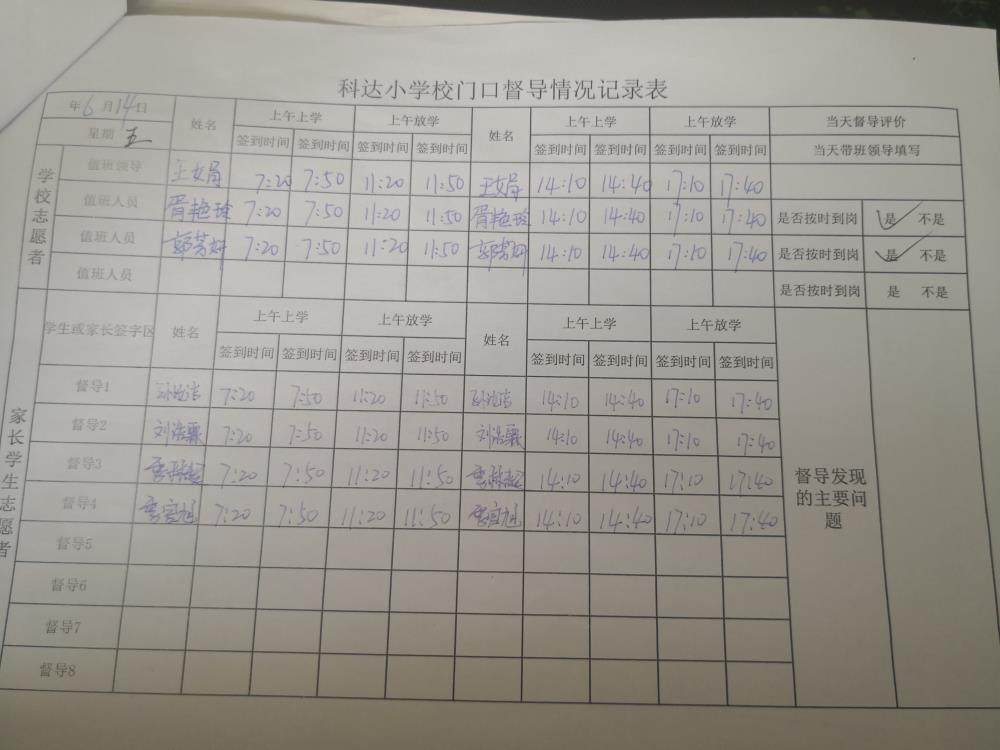 科达小学校门口督导情况记录表
年6月14日 姓名 上午上学 上午放学 姓名 上午上学 上午放学 当天督导评价
星期 五 签到时间 签到时间 签到时间 签到时间 签到时间 签到时间 签到时间 签到时间 当天带班领导填写
学校志愿者
值班领导 王女娟 7:20 7:50 11:20 11:50 王女娟 14:10 14:40 17:10 17:40
值班人员 胥艳玲 7:20 7:50 11:20 11:50 胥艳玲 14:10 14:40 17:10 17:40 是否按时到岗 是 不是
值班人员 郭芳妍 7:20 7:50 11:20 11:50 郭芳妍 14:10 14:40 17:10 17:40 是否按时到岗 是 不是
值班人员 是否按时到岗 是 不是
学生或家长签字区 姓名 上午上学 上午放学 姓名 上午上学 上午放学
签到时间 签到时间 签到时间 签到时间 签到时间 签到时间 签到时间 签到时间
家长学生志愿者
督导1 7:20 7:50 11:20 11:50 14:10 14:40 17:10 17:40
督导2 刘浩霖 7:20 7:50 11:20 11:50 刘浩霖 14:10 14:40 17:10 17:40
督导3 7:20 7:50 11:20 11:50 14:10 14:40 17:10 17:40
督导4 7:20 7:50 11:20 11:50 14:10 14:40 17:10 17:40
督导5
督导6
督导7
督导8
督导发现
的主要问
题